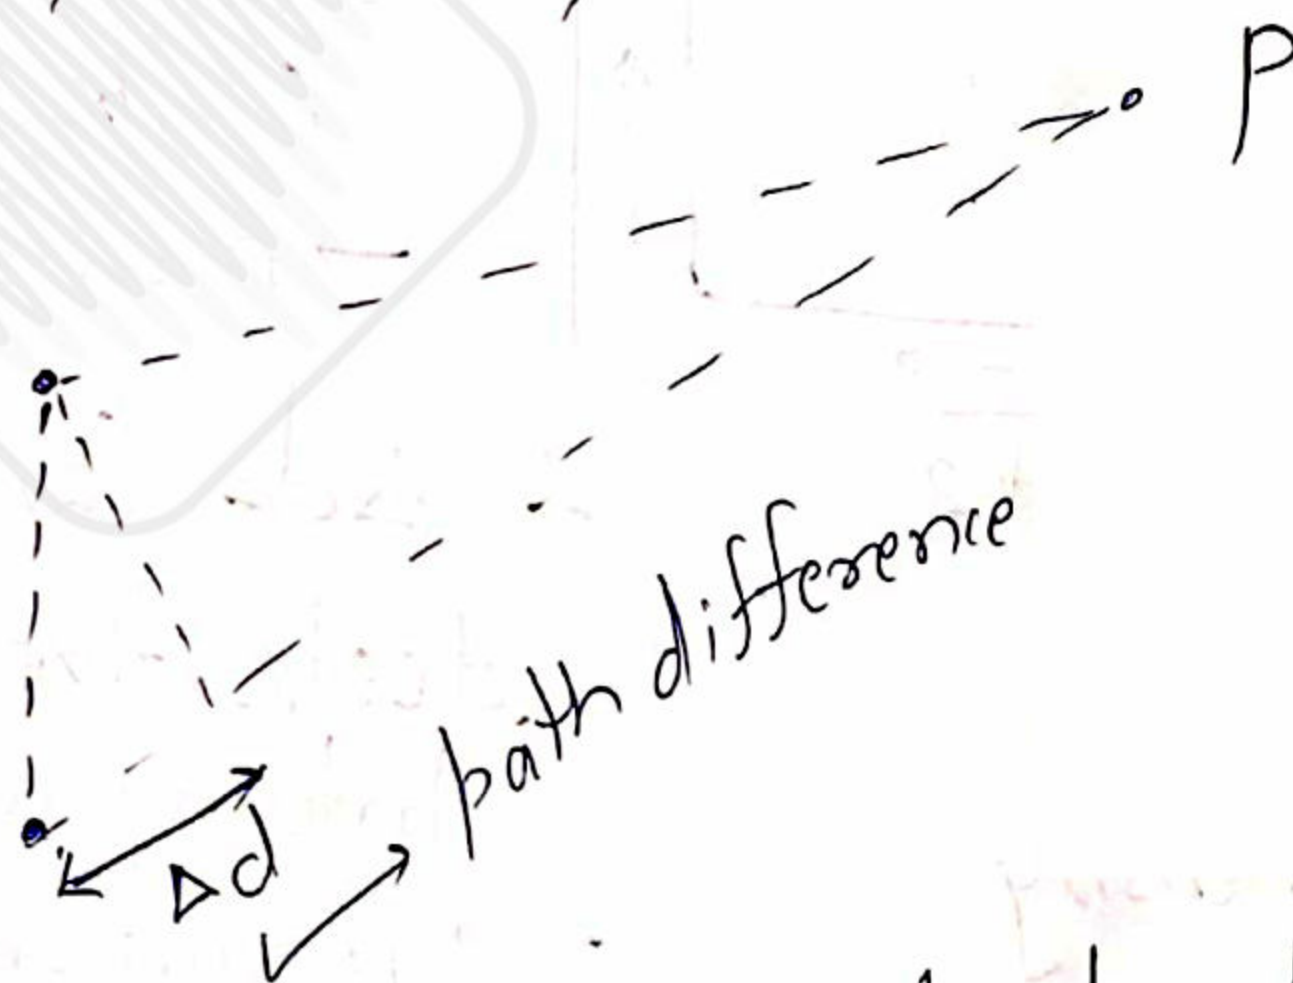 P
path difference
Δd